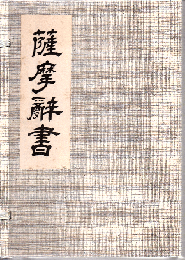 薩摩辭書